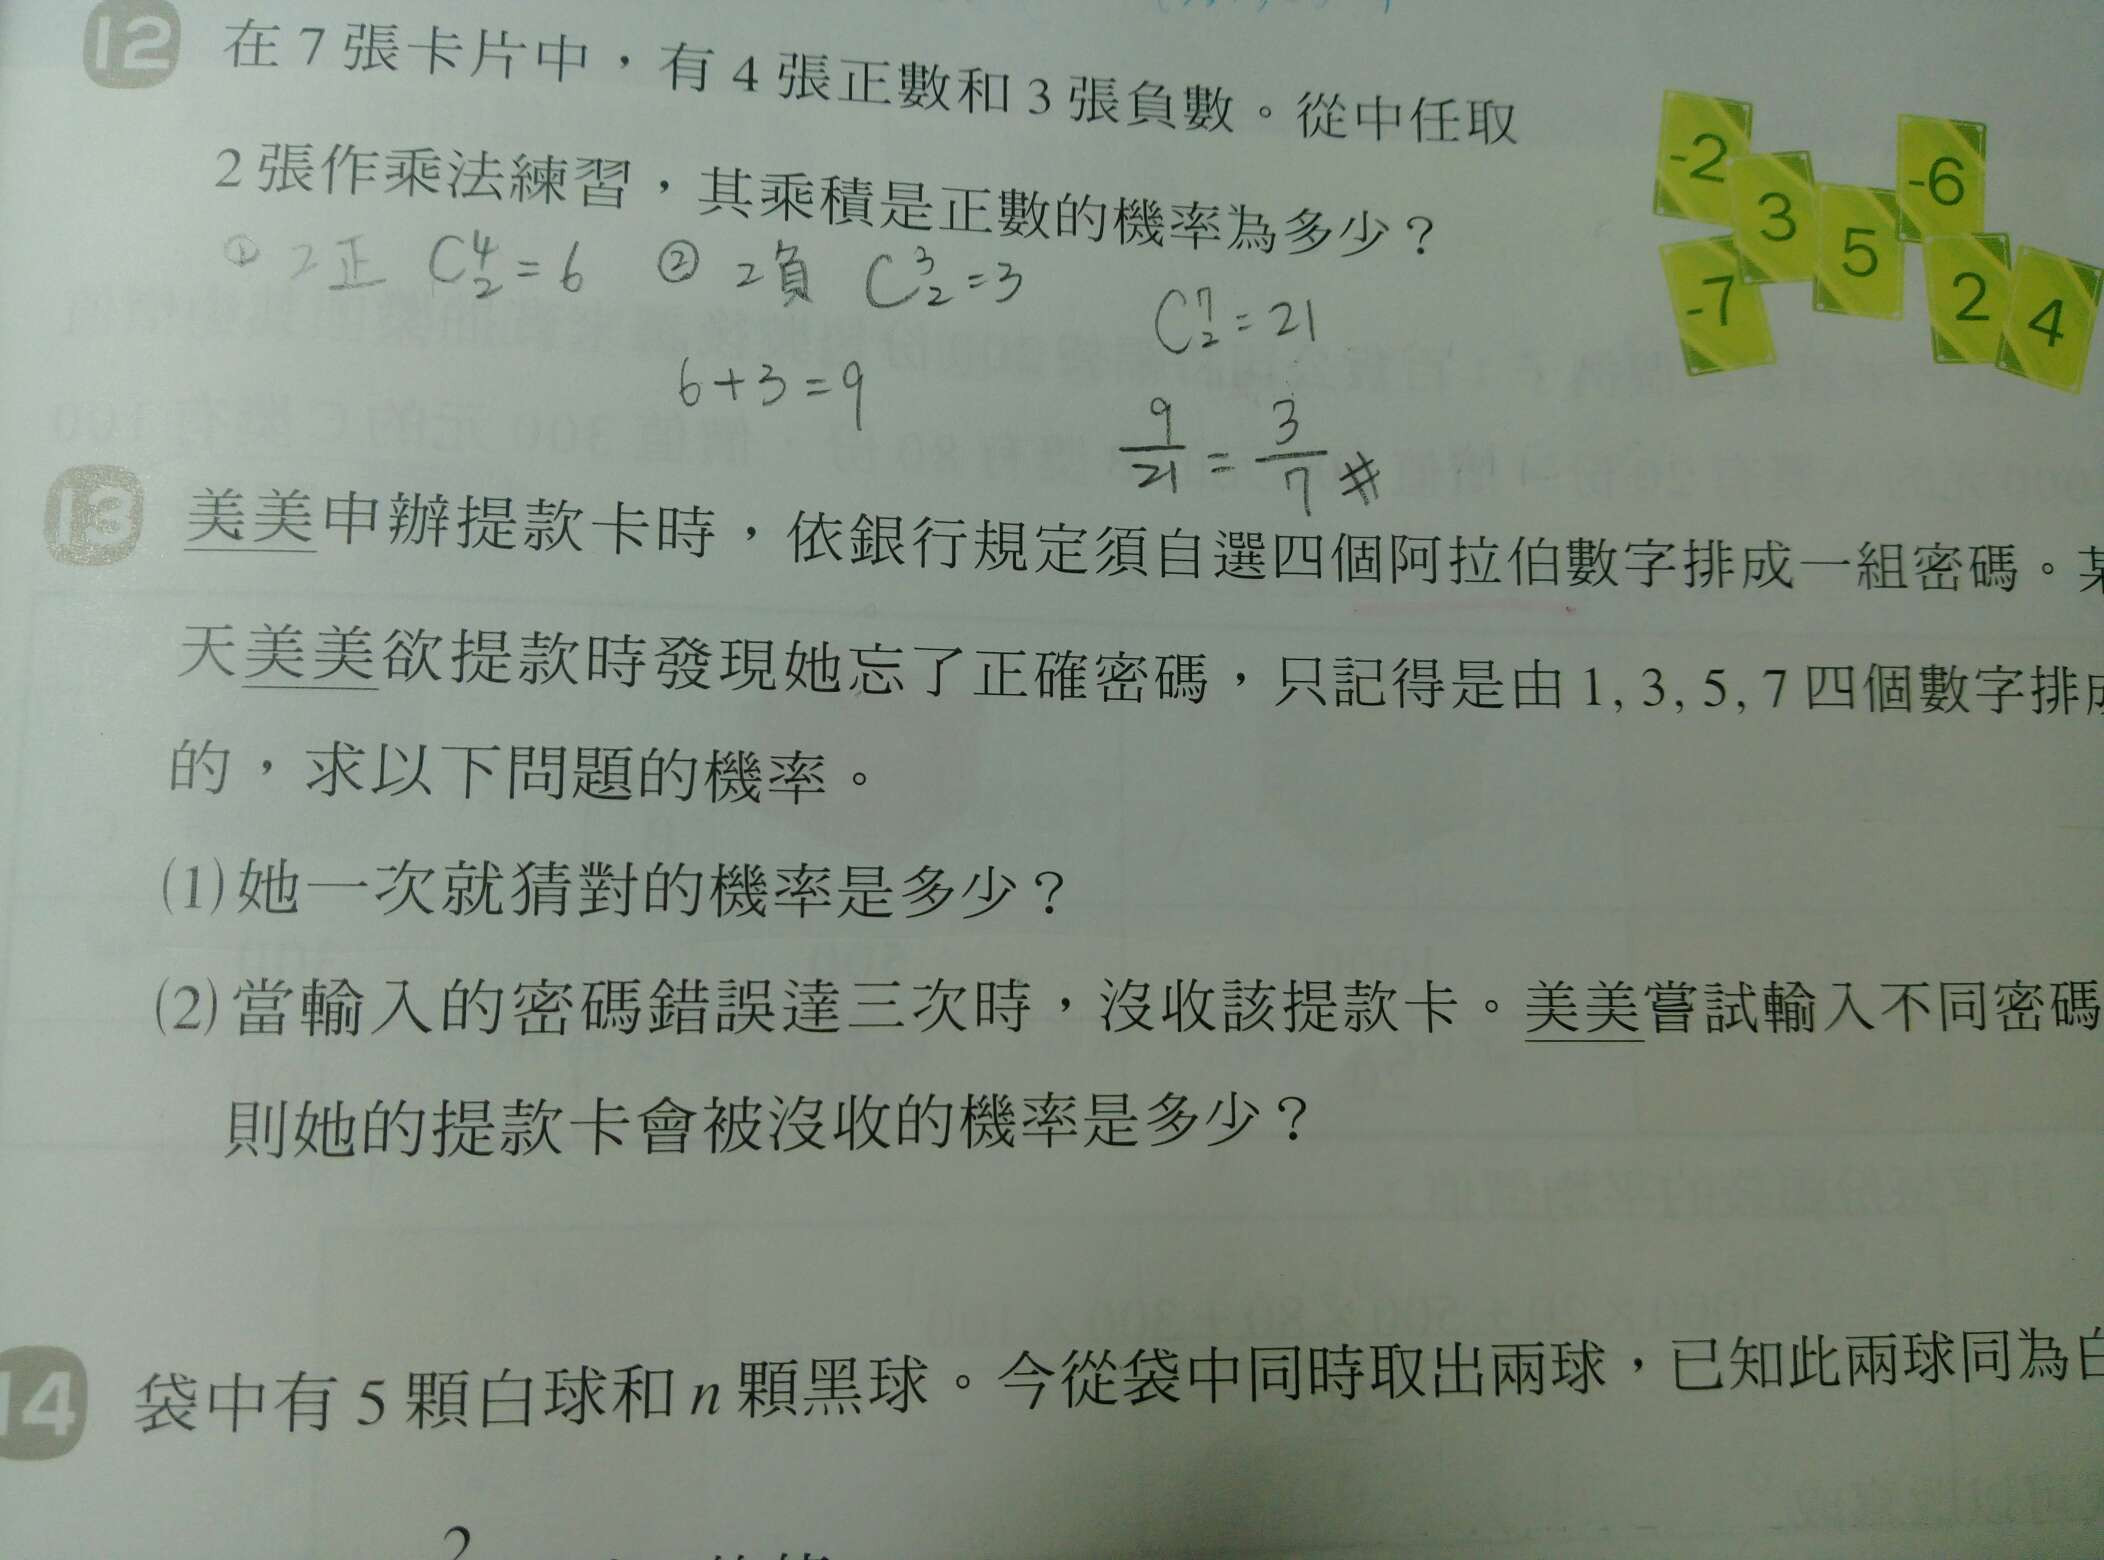 12 在7張卡片中，有4張正數和3張負數。從中任取
2張作乘法練習，其乘積是正數的機率為多少？
-2 3 5 -6 -7 2 4
① 2正 C⁴₂=6 ② 2負 C³₂=3
C⁷₂=21
6+3=9
9/21 = 3/7 #
13 美美申辦提款卡時，依銀行規定須自選四個阿拉伯數字排成一組密碼。某
天美美欲提款時發現她忘了正確密碼，只記得是由1, 3, 5, 7四個數字排成
的，求以下問題的機率。
(1)她一次就猜對的機率是多少？
(2)當輸入的密碼錯誤達三次時，沒收該提款卡。美美嘗試輸入不同密碼
則她的提款卡會被沒收的機率是多少？
14 袋中有5顆白球和n顆黑球。今從袋中同時取出兩球，已知此兩球同為白
2